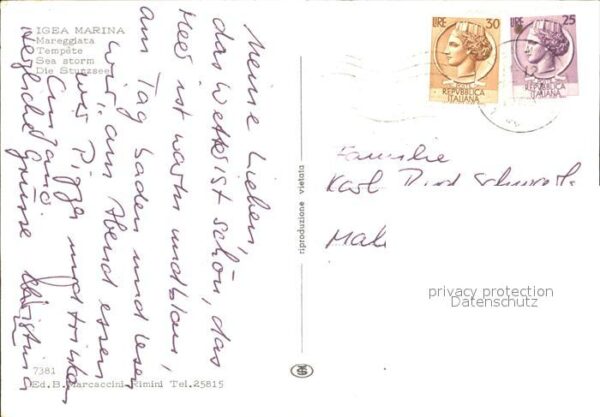 IGEA MARINA
Mareggiata
Tempête
Sea storm
Die Sturzsee
Meine Lieben,
das Wetter ist schön, das
Meer ist warm und blau,
am Tag baden und lesen
wir, am Abend essen
wir Pizza und trinken
Herzliche Grüsse
Christina
7381
Ed. B. Marcaccini-Rimini Tel. 25815
riproduzione vietata
LIRE 30
POSTE
REPVBBLICA
ITALIANA
LIRE 25
POSTE
REPVBBLICA
ITALIANA
Familie
Karl
privacy protection
Datenschutz